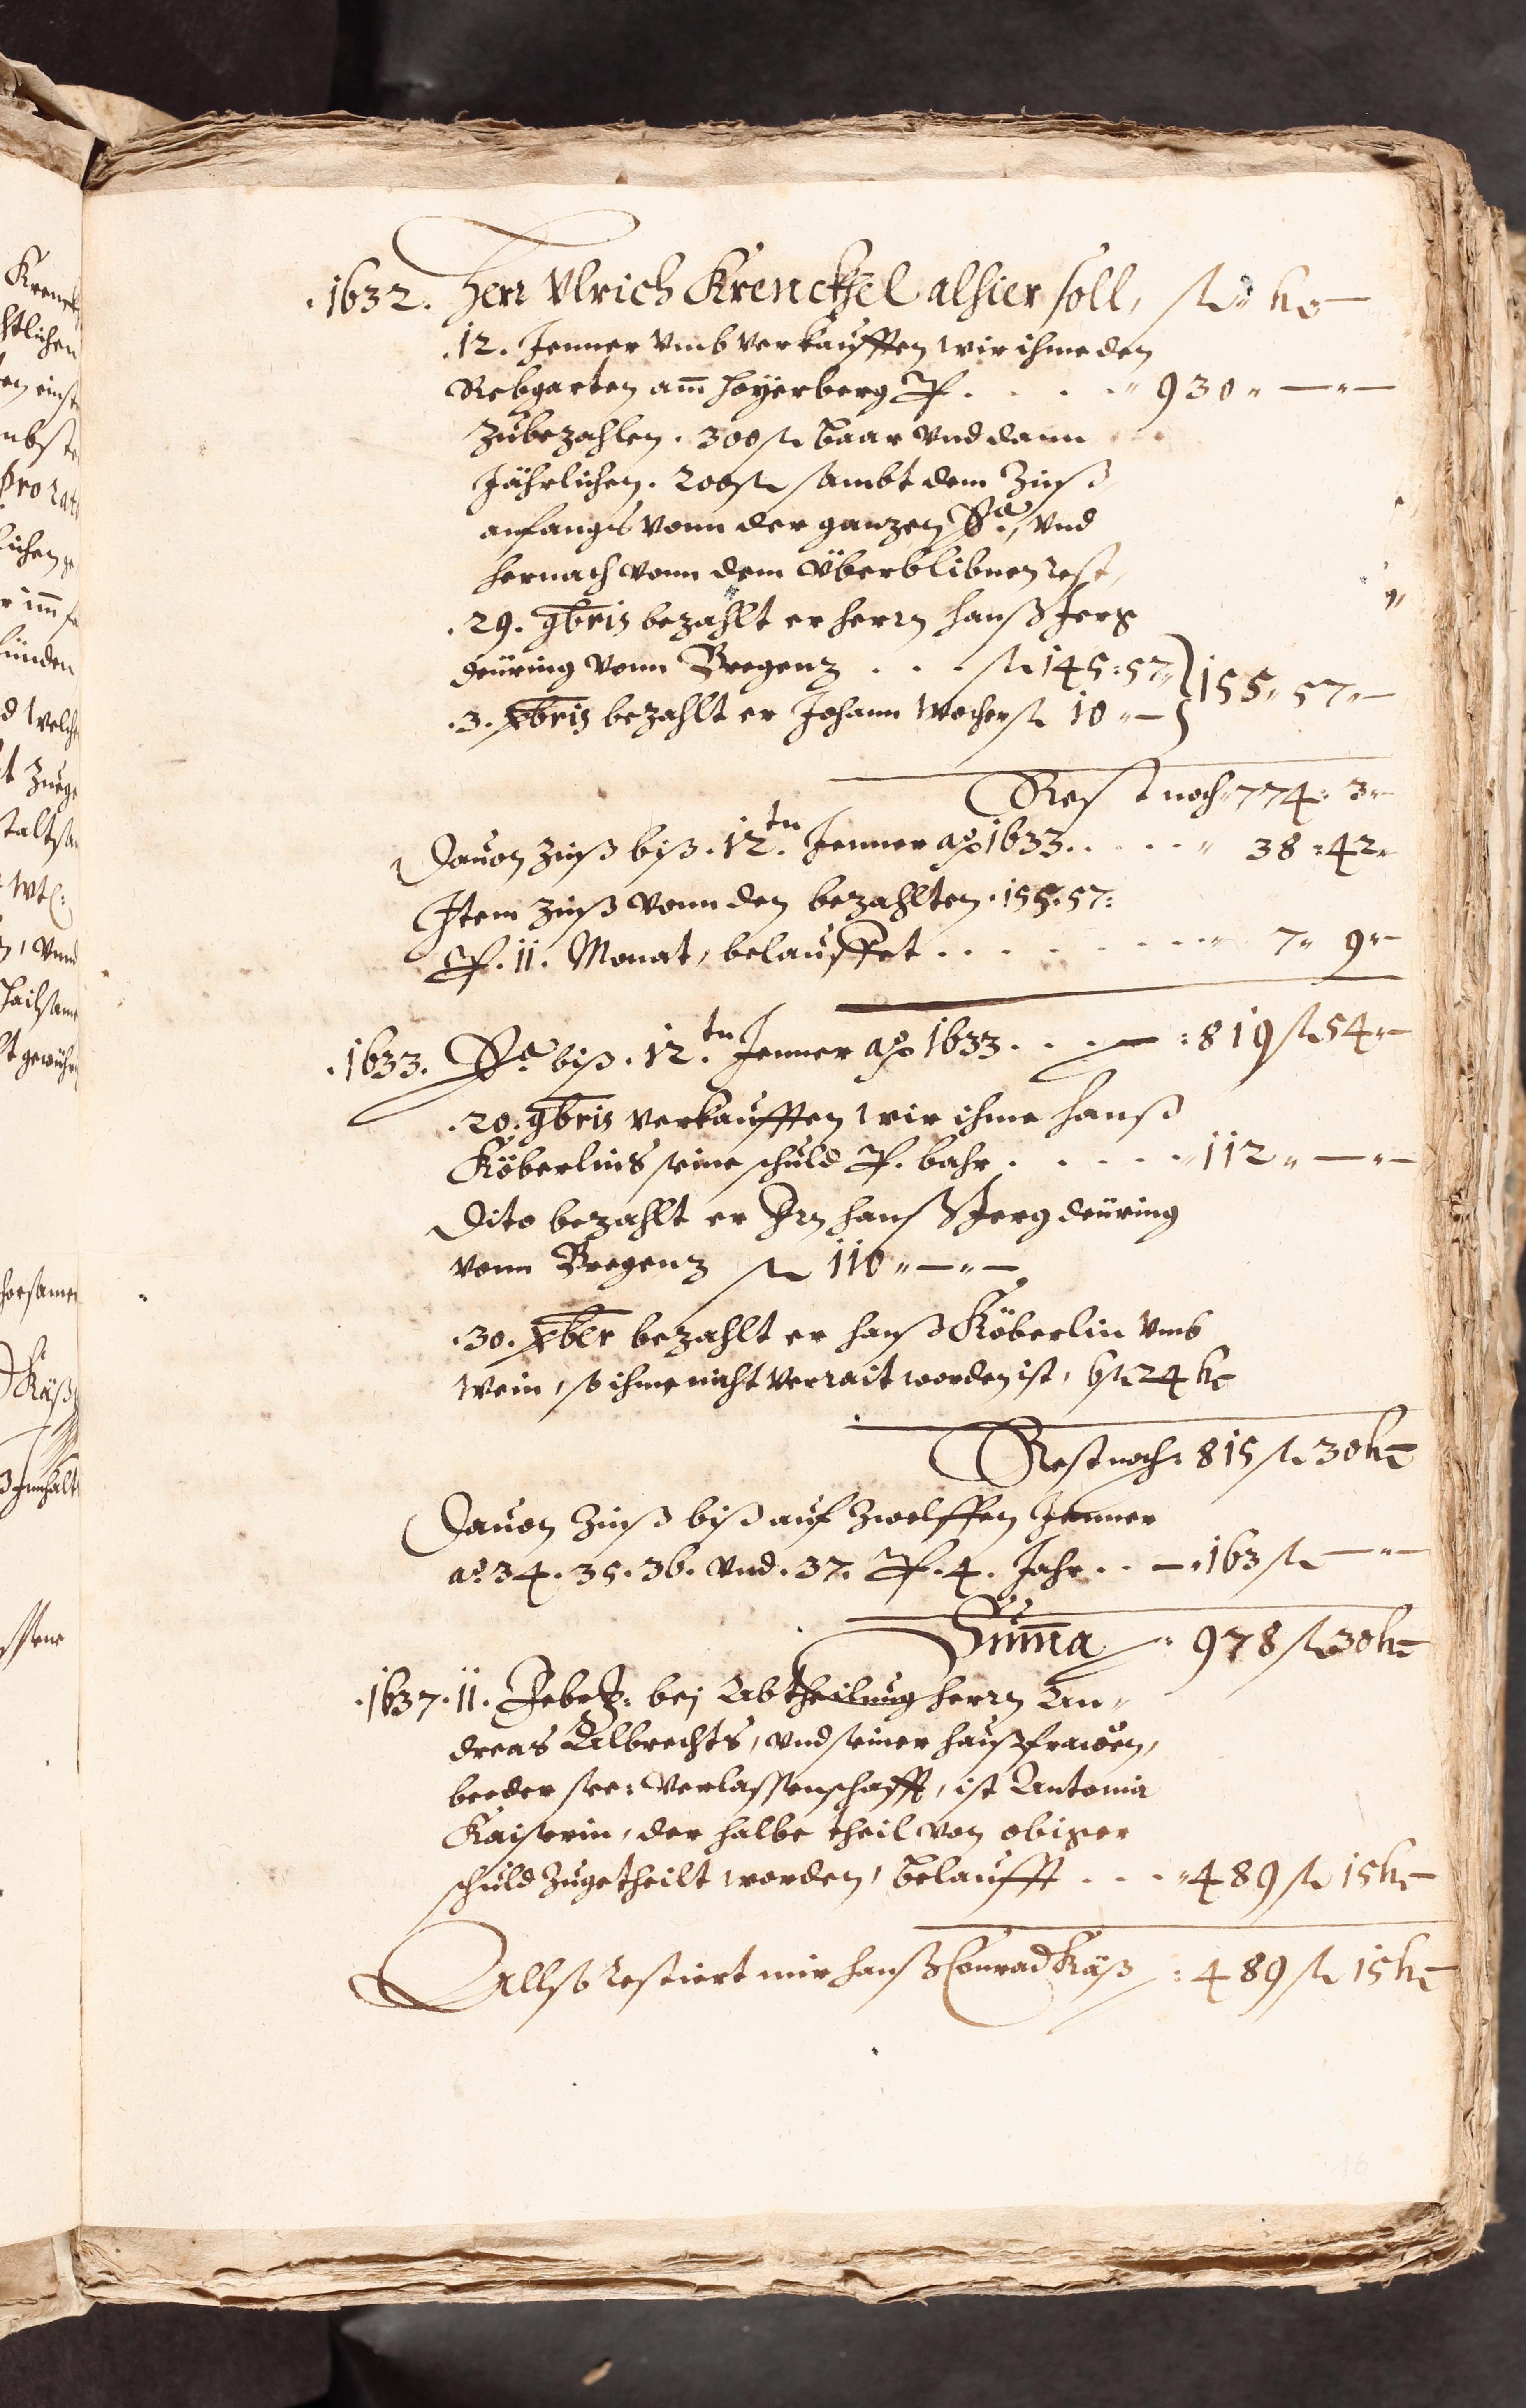 .1632. Herr Ulrich Krenckhel alhier soll, fl kr
.12. Jenner umb verkaufften wir ihme den
Rebgarten am̄ Hoyerberg P. . . . . " 930 " — " —
Zubezahlen . 300 fl baar vnd dann
Jährlichen . 200 fl sambt dem Zinß
anfangs vonn der ganzen Sa., vnd
hernach vonn dem überblibnen Rest,
.29. 9bris bezahlt er herrn Hanß Jerg
deüring vonn Bregenz . . . fl 145 : 57 " } 155 " 57 " —
.3. Xbris bezahlt er Johann Wocher fl 10 " —
Rest noch " 774 : 3 " —
Dauon Zinß biß . 12.tn Jenner ao 1633 . . . . . " 38 : 42 "
Item Zinß vonn den bezahlten . 155 . 57 :
P. 11. Monat, belauffet . . . . . . . . . " 7 " 9 " —
.1633. Sa. biß . 12.tn Jenner ao 1633 . . . — : 819 fl 54 " —
.20. 9bris verkaufften wir ihme Hanß
Köberlins seine schuld P. bahr . . . . . " 112 " — " —
Dito bezahlt er Hrn Hanß Jerg deüring
vonn Bregenz fl 110 " — " —
.30. Xber bezahlt er Hanß Köberlin umb
Wein, so ihme nicht verrait worden ist, 6 fl 24 kr
Rest noch : 815 fl 30 kr
Dauon Zinß biß auf Zwelfften Jenner
ao. 34 . 35 . 36 . vnd . 37 . P. 4. Jahr . . — " 163 fl — " —
Sum̄a " 978 fl 30 kr
.1637. 11. Febr: bej Abtheilung herrn An-
dreas Albrechts, vnd seiner haußfrawen,
beeder see: verlassenschafft, ist Antonia
Kaiserin, der halbe theil von obiger
schuld Zugetheilt worden, belaufft . . . " 489 fl 15 kr
Allso restiert mir Hanß Conrad Käß : 489 fl 15 kr